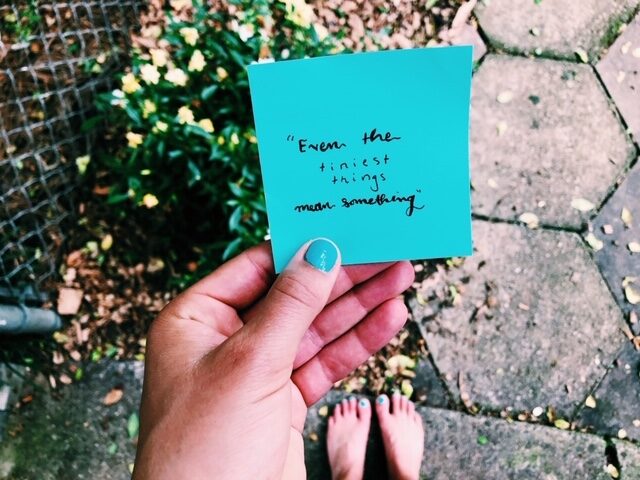 "Even the
tiniest
things
mean something"